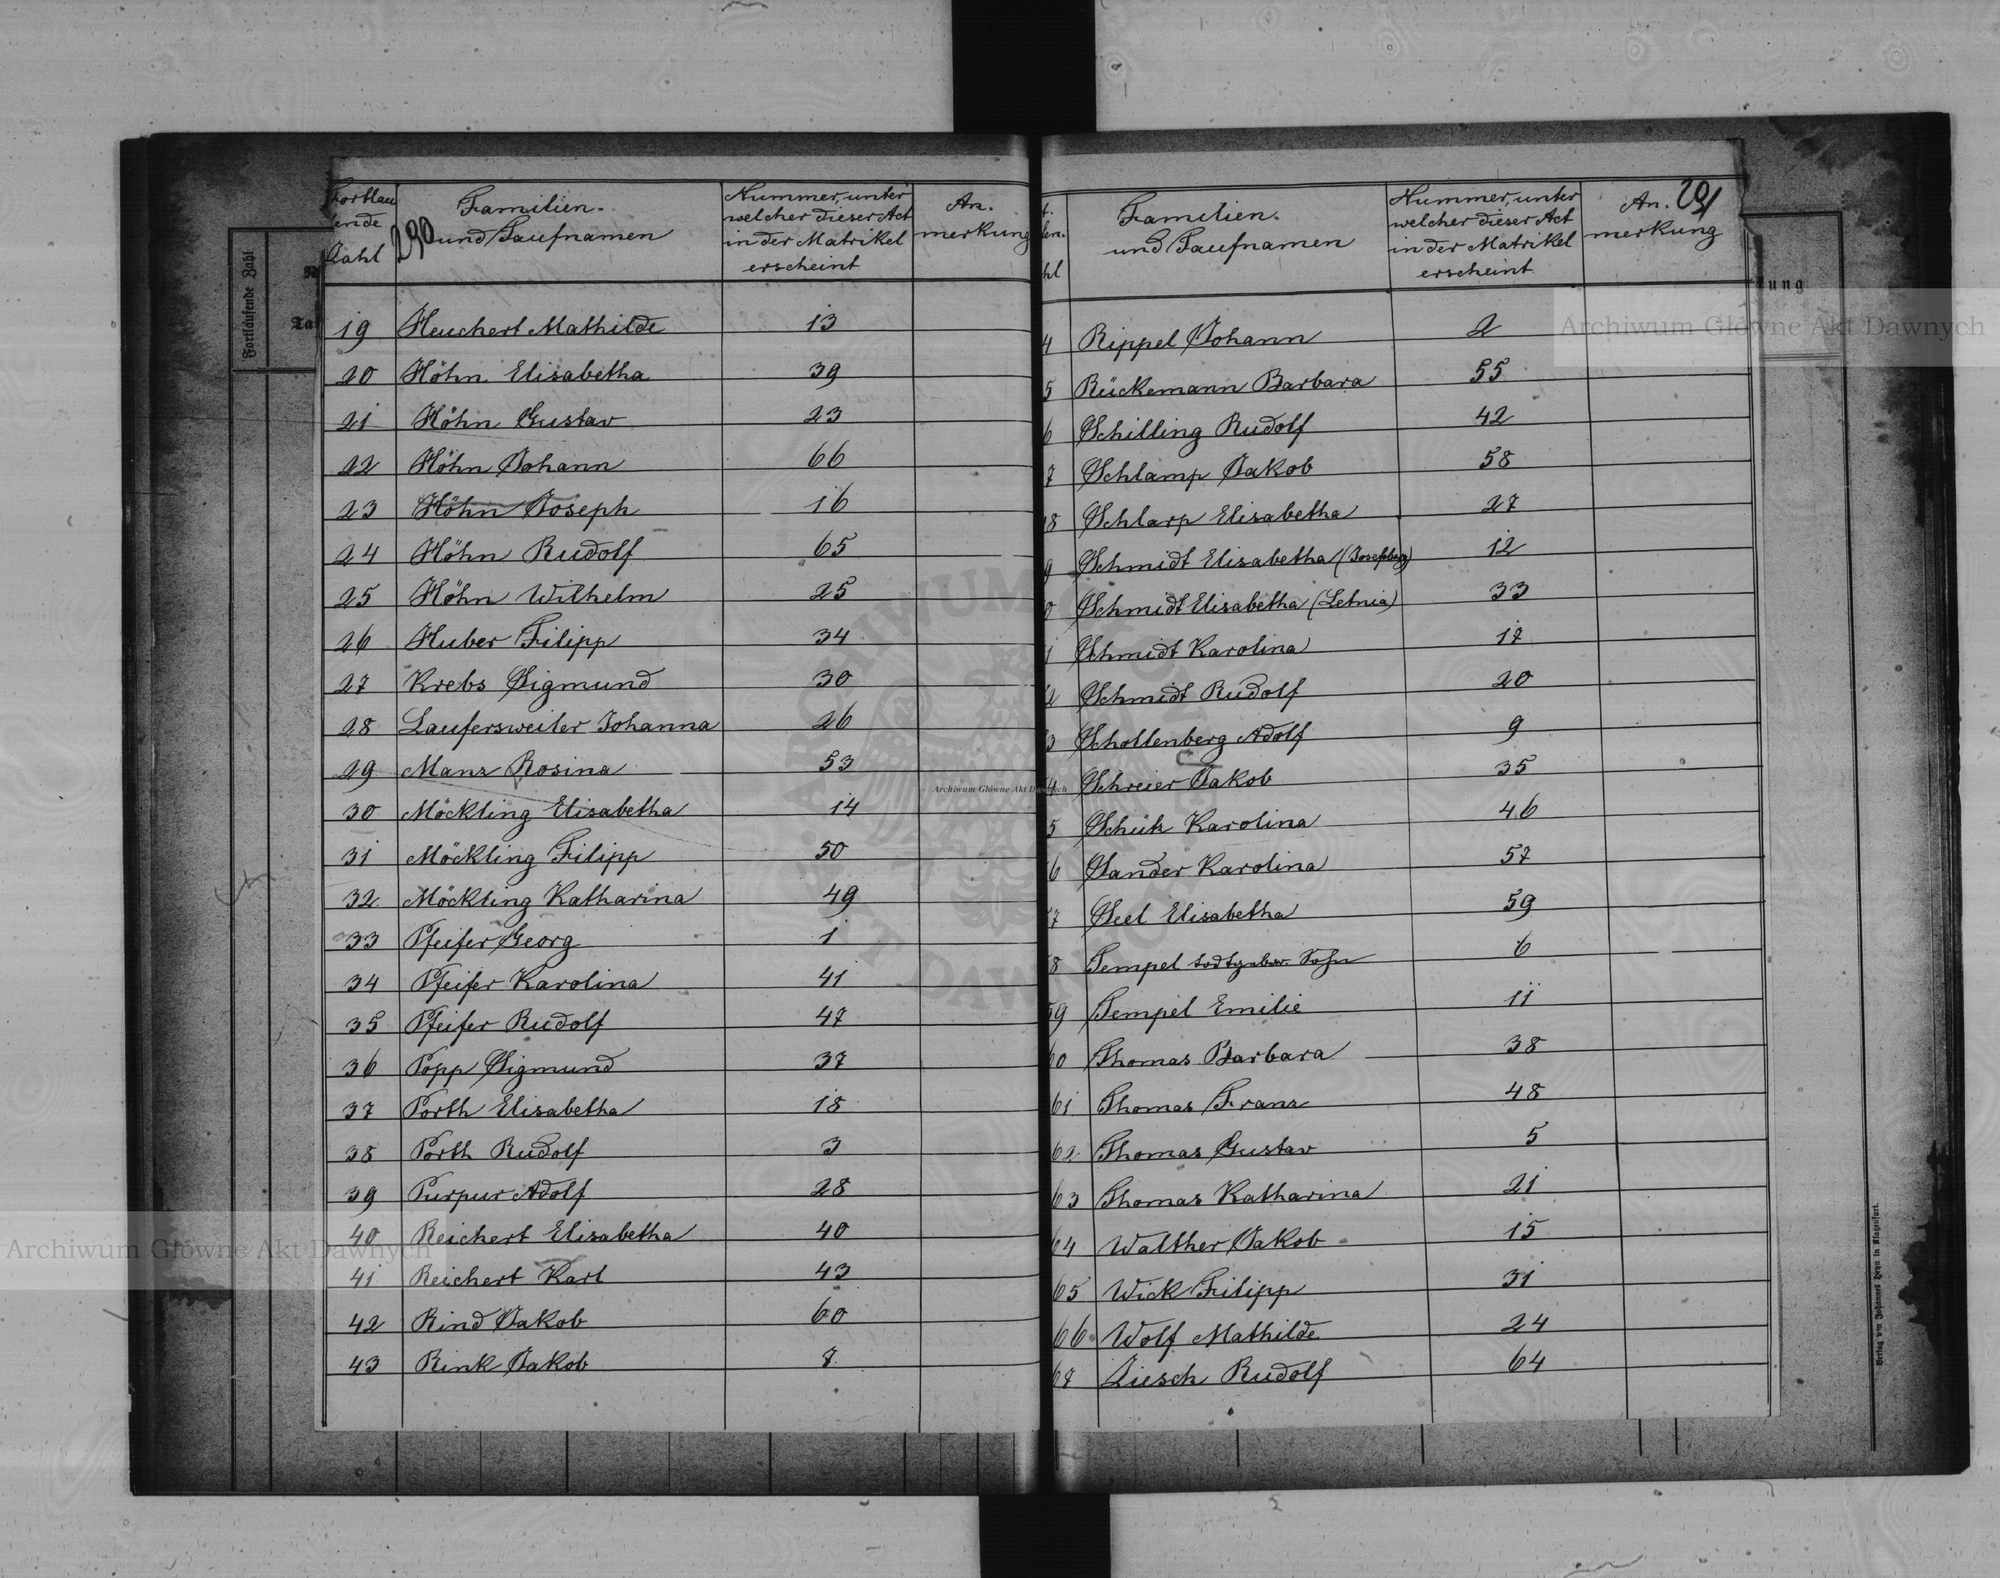 Fortlau
fende
Zahl
290
Familien-
und Taufnamen
Nummer, unter
welcher dieser Act
in der Matrikel
erscheint
An-
merkung
19 Heuchert Mathilde 13
20 Höhn Elisabetha 39
21 Höhn Gustav 23
22 Höhn Johann 66
23 Höhn Joseph 16
24 Höhn Rudolf 65
25 Höhn Wilhelm 25
26 Huber Filipp 34
27 Krebs Sigmund 30
28 Laufersweiler Johanna 26
29 Manz Rosina 53
30 Möckling Elisabetha 14
31 Möckling Filipp 50
32 Möckling Katharina 49
33 Pfeifer Georg 1
34 Pfeifer Karolina 41
35 Pfeifer Rudolf 47
36 Popp Sigmund 37
37 Porth Elisabetha 18
38 Porth Rudolf 3
39 Purpur Adolf 28
40 Reichert Elisabetha 40
41 Reichert Karl 43
42 Rind Jakob 60
43 Rink Jakob 7
Familien-
und Taufnamen
Nummer, unter
welcher dieser Act
in der Matrikel
erscheint
An-
merkung
291
4 Rippel Johann 2
5 Rückemann Barbara 55
6 Schilling Rudolf 42
7 Schlamp Jakob 58
8 Schlarp Elisabetha 27
9 Schmidt Elisabetha (Josefsberg) 12
0 Schmidt Elisabetha (Letnia) 33
1 Schmidt Karolina 17
2 Schmidt Rudolf 20
3 Schollenberg Adolf 9
4 Schreier Jakob 35
5 Schütz Karolina 46
6 Sander Karolina 57
7 Seel Elisabetha 59
8 Tempel todtgebor. Sohn 6
59 Tempel Emilie 11
60 Thomas Barbara 38
61 Thomas Franz 48
62 Thomas Gustav 5
63 Thomas Katharina 21
64 Walther Jakob 15
65 Wick Filipp 31
66 Wolf Mathilde 24
67 Ziesch Rudolf 64
Fortlaufende Zahl
Tau
ung
Verlag von Johannes Heyn in Klagenfurt.
Archiwum Główne Akt Dawnych
Archiwum Główne Akt Dawnych
Archiwum Główne Akt Dawnych